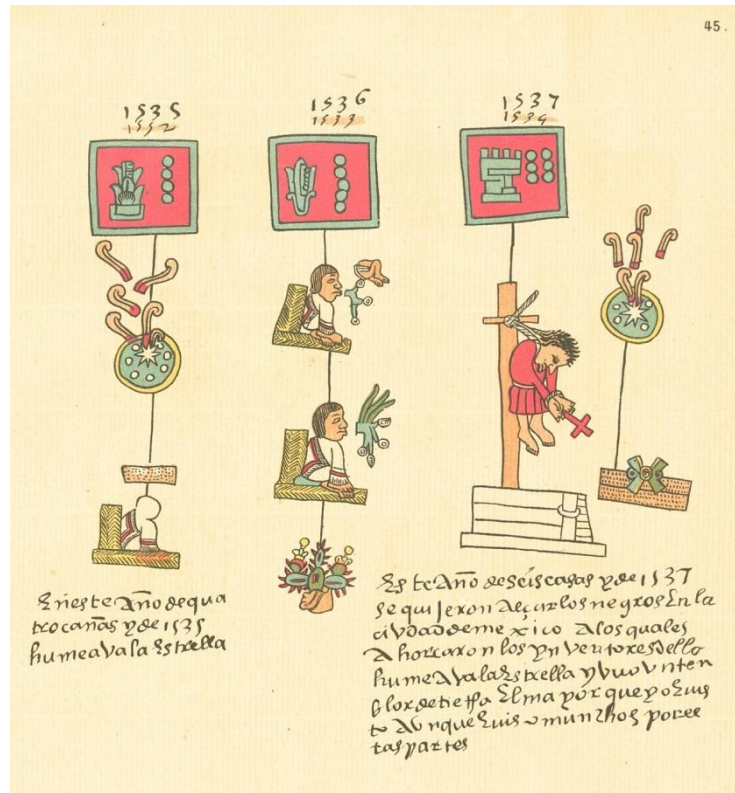 45.
1535
1552
1536
1533
1537
1534
En este Año de qua
tro cañas y de 1535
humeava la Estrella
Este Año de seis casas y de 1537
se quisieron Alçar los negros En la
ciudad de mexico A los quales
Ahorcaron los ynventores dello
humeAva la Estrella y huvo vn ten
blor de El mayor que yo E vis
to Avnque E visto munchos por es
tas partes